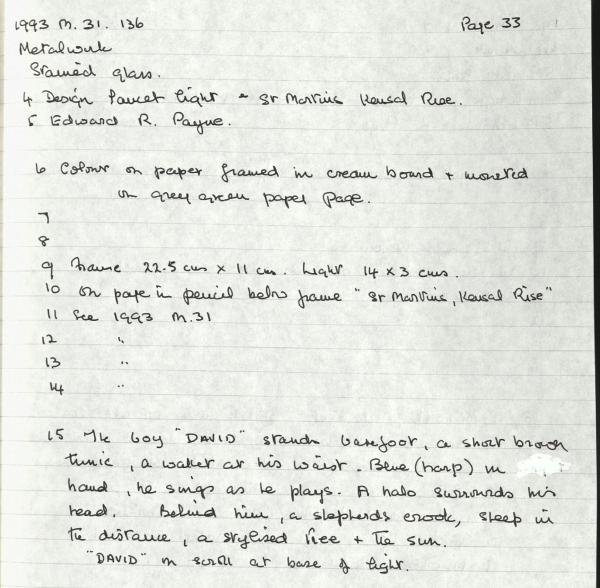 1993 M. 31. 136 Page 33
Metalwork
Stained glass.
4 Design faucet light - St Martins Kensal Rise.
5 Edward R. Payne.
6 Colour on paper framed in cream board + mounted
on grey green paper page.
7
8
9 Frame 22.5 cms × 11 cms. Light 14 × 3 cms.
10 On page in pencil below frame "St Martins, Kensal Rise"
11 See 1993 M.31
12 "
13 "
14 "
15 The boy "DAVID" stands barefoot, a short brown
tunic, a wallet at his waist. Blue (harp) in
hand, he sings as he plays. A halo surrounds his
head. Behind him, a shepherds crook, sheep in
the distance, a stylised tree + the sun.
"DAVID" in scroll at base of light.